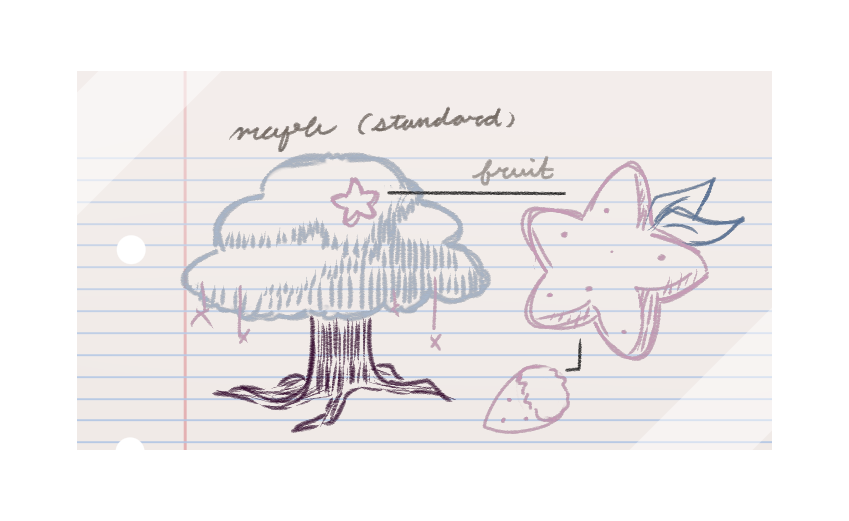 maple (standard)
fruit